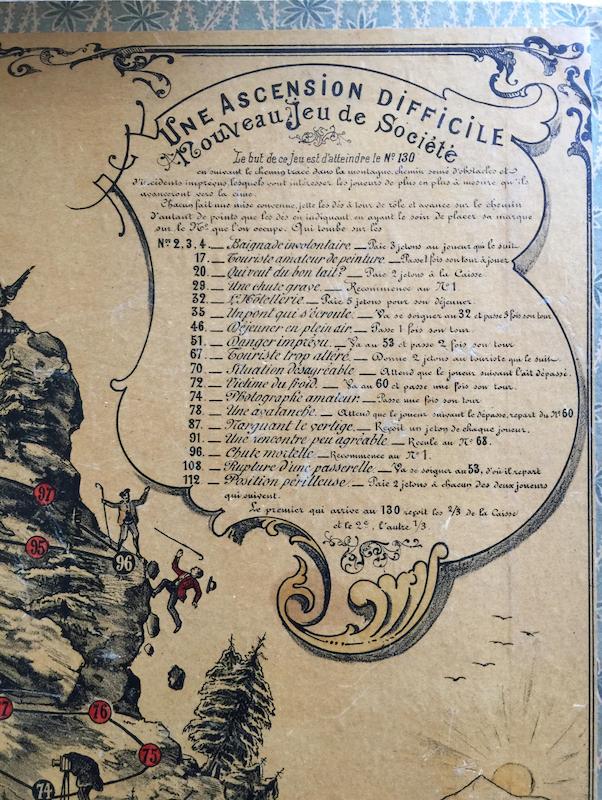 UNE ASCENSION DIFFICILE
Nouveau Jeu de Société
Le but de ce jeu est d'atteindre le Nº 130
en suivant le chemin tracé dans la montagne, chemin semé d'obstacles et
d'incidents imprévus, lesquels vont intéresser les joueurs de plus en plus à mesure qu'ils
avanceront vers la cime.
Chacun fait une mise convenue, jette les dés à tour de rôle et avance sur le chemin
d'autant de points que les dés en indiquent, en ayant le soin de placer sa marque
sur le Nº que l'on occupe. Qui tombe sur les
Nºs 2, 3, 4. — Baignade involontaire — Paie 3 jetons au joueur qui le suit
17. — Touriste amateur de peinture. — Passe 1 fois son tour à jouer
20. — Qui veut du bon lait? — Paie 2 jetons à la Caisse
29. — Une chute grave. — Recommence au Nº 1
32. — L'Hôtellerie. — Paie 5 jetons pour son déjeuner.
35. — Un pont qui s'écroule. — Va se soigner au 32 et passe 3 fois son tour
46. — Déjeuner en plein air. — Passe 1 fois son tour.
51. — Danger imprévu. — Va au 53 et passe 2 fois son tour
67. — Touriste trop altéré. — Donne 2 jetons au touriste qui le suit
70. — Situation désagréable — Attend que le joueur suivant l'ait dépassé.
72. — Victime du froid. — Va au 60 et passe une fois son tour.
74. — Photographe amateur. — Passe une fois son tour
78. — Une avalanche. — Attend que le joueur suivant le dépasse, repart du Nº 60
87. — Narguant le vertige. — Reçoit un jeton de chaque joueur.
91. — Une rencontre peu agréable — Recule au Nº 68.
96. — Chute mortelle — Recommence au Nº 1.
108. — Rupture d'une passerelle. — Va se soigner au 53, d'où il repart
112. — Position périlleuse — Paie 2 jetons à chacun des deux joueurs
qui suivent.
Le premier qui arrive au 130 reçoit les 2/3 de la Caisse
et le 2e, l'autre 1/3.
97
95
96
77
76
75
74